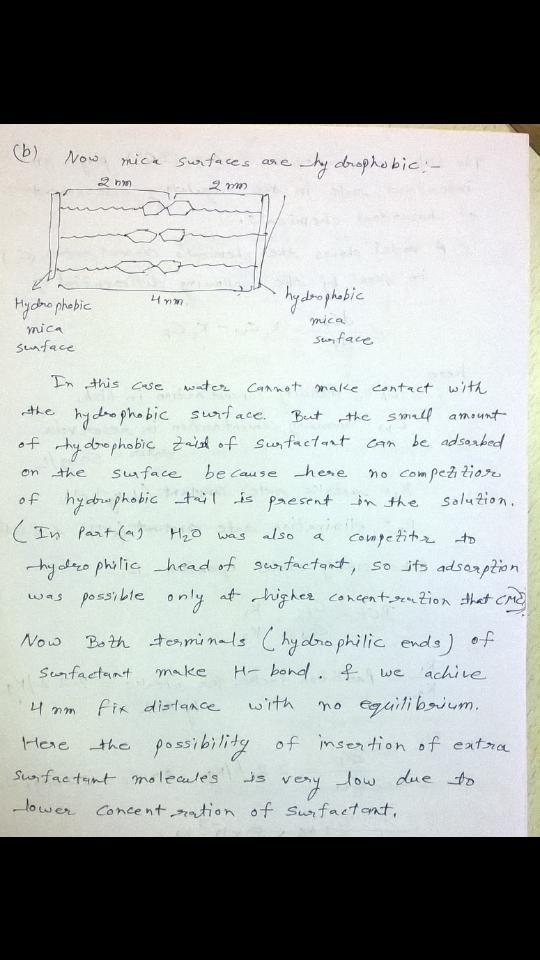 (b) Now mica surfaces are hydrophobic:-
2 nm 2 nm
4 nm
Hydrophobic
mica
surface
hydrophobic
mica
surface
In this case water cannot make contact with
the hydrophobic surface. But the small amount
of hydrophobic of surfactant can be adsorbed
on the surface because here no competitior
of hydrophobic tail is present in the solution.
(In Part (a) H2O was also a competitr to
hydrophilic head of surfactant, so its adsorption
was possible only at higher concentration that CMC)
Now Both terminals (hydrophilic ends) of
surfactant make H-bond. & we achive
4 nm fix distance with no equilibrium.
Here the possibility of insertion of extra
surfactant molecules is very low due to
lower concentration of surfactant.